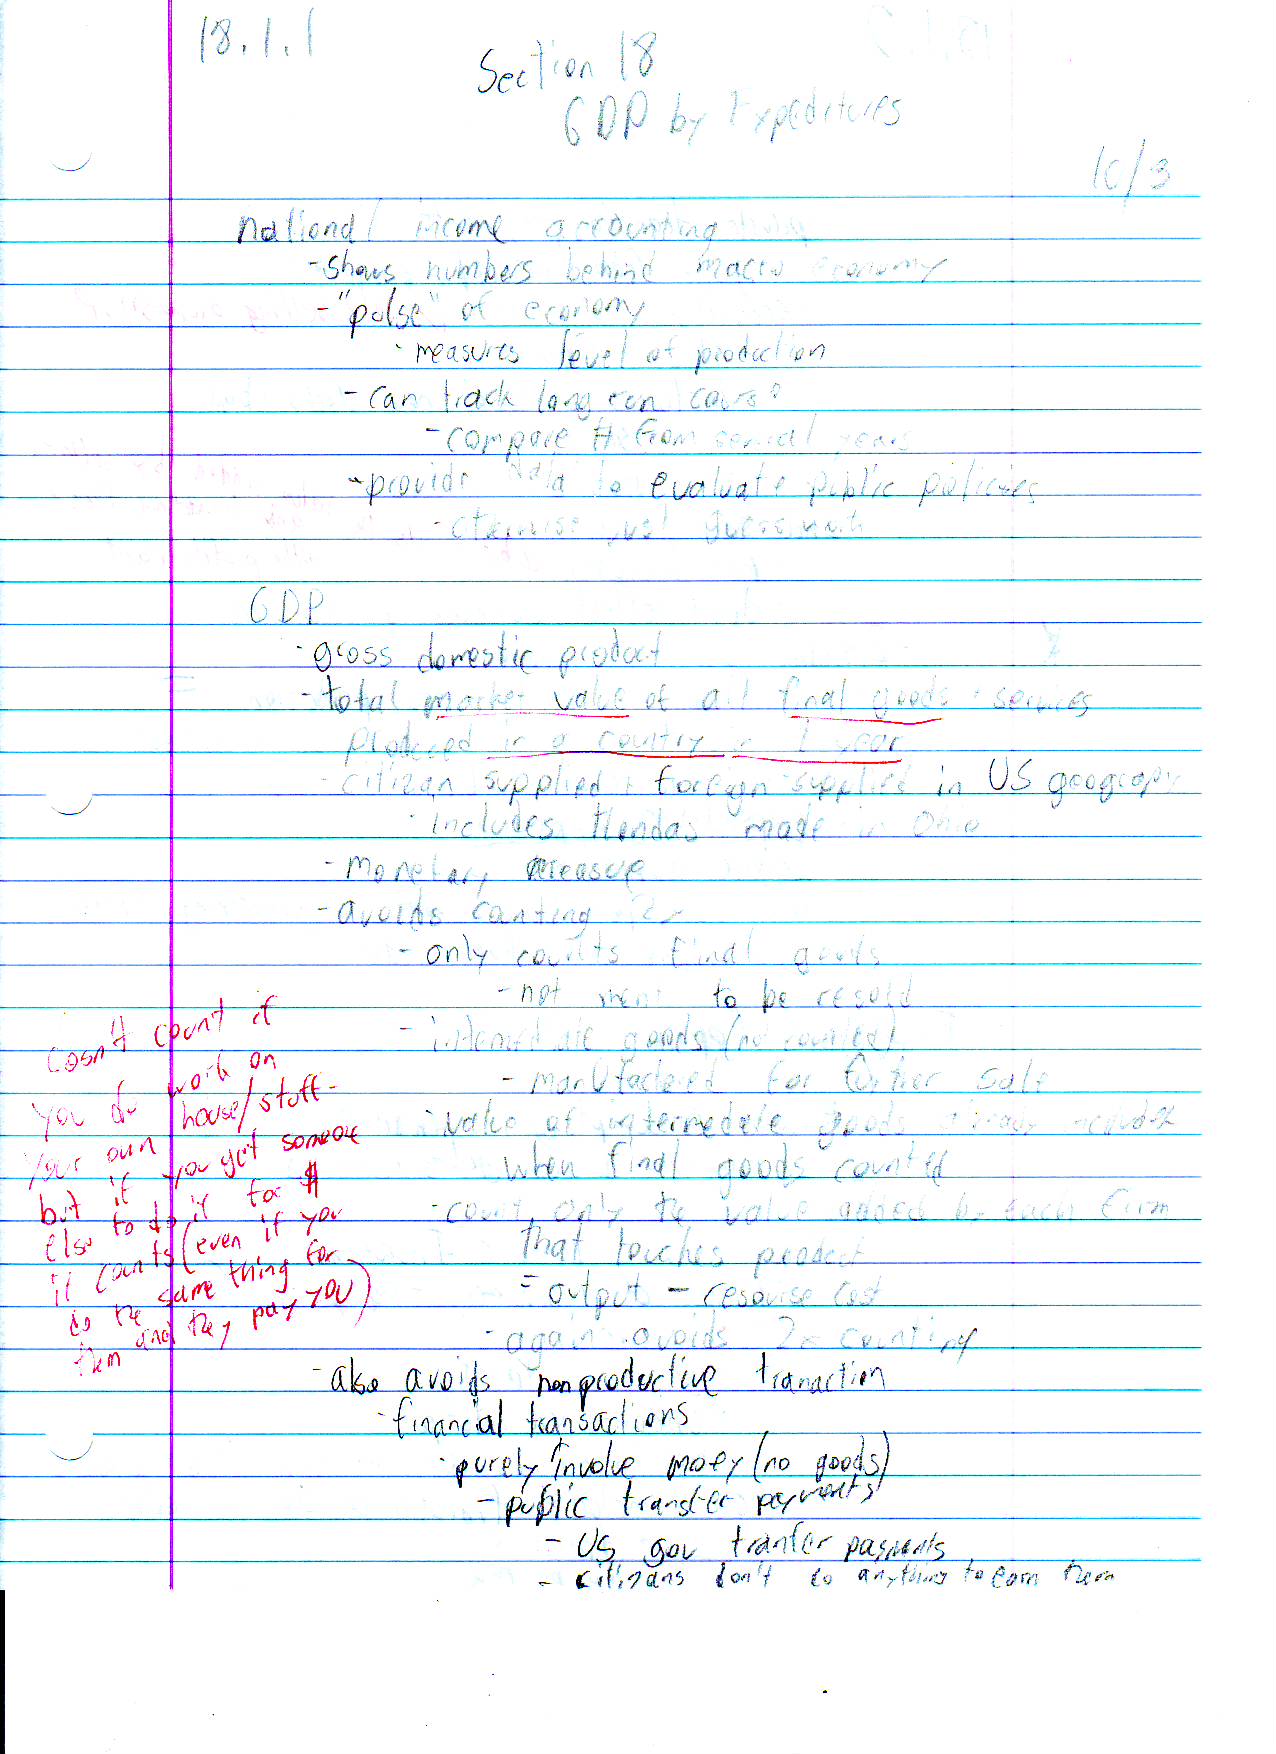 18.1.1
Section 18
GDP by Expeditures
10/3
national income accounting
-shows numbers behind macro economy
-"pulse" of economy
-measures level of production
-can track long run course
-compare # from several years
-provide data to evaluate public policies
-otherwise just guesswork
GDP
-gross domestic product
-total market value of all final goods + services
produced in a country in 1 year
-citizan supplied + foreign supplied in US geograpy
-includes Hondas made in Ohio
-monetary measure
-avoids counting
-only counts final goods
-not ment to be resold
-intermediate goods (no counted)
-manufactered for further sale
-value of intermediate goods already
when final goods counted
-count only the value added by each firm
that touches product
= output - resourse cost
-again avoids 2x counting
-also avoids nonproductive tranaction
-financial transactions
-purely involve money (no goods)
-public transfer payments
-US gov tranfer payments
-citizans don't do anything to earn them
Dosn't count if
you do work on
your own house/stuff-
but if you get someone
else to do it for $
it counts (even if you
do the same thing for
them and they pay you)